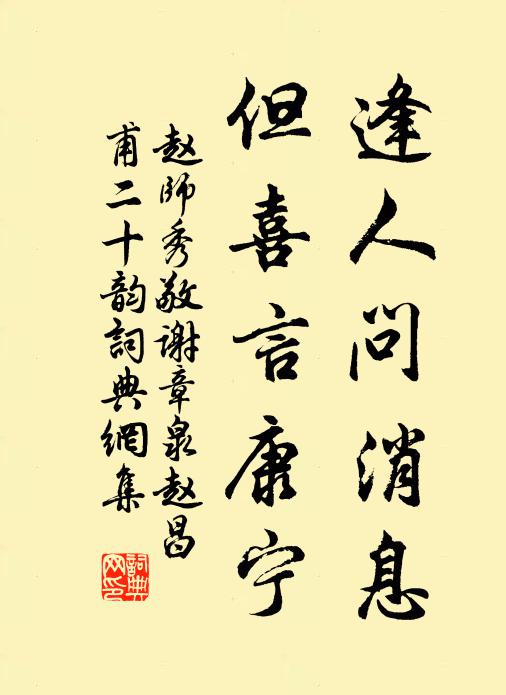 逢人问消息
但喜言康宁
赵师秀敬谢章泉赵昌
甫二十韵詞典網集
詞典
网印